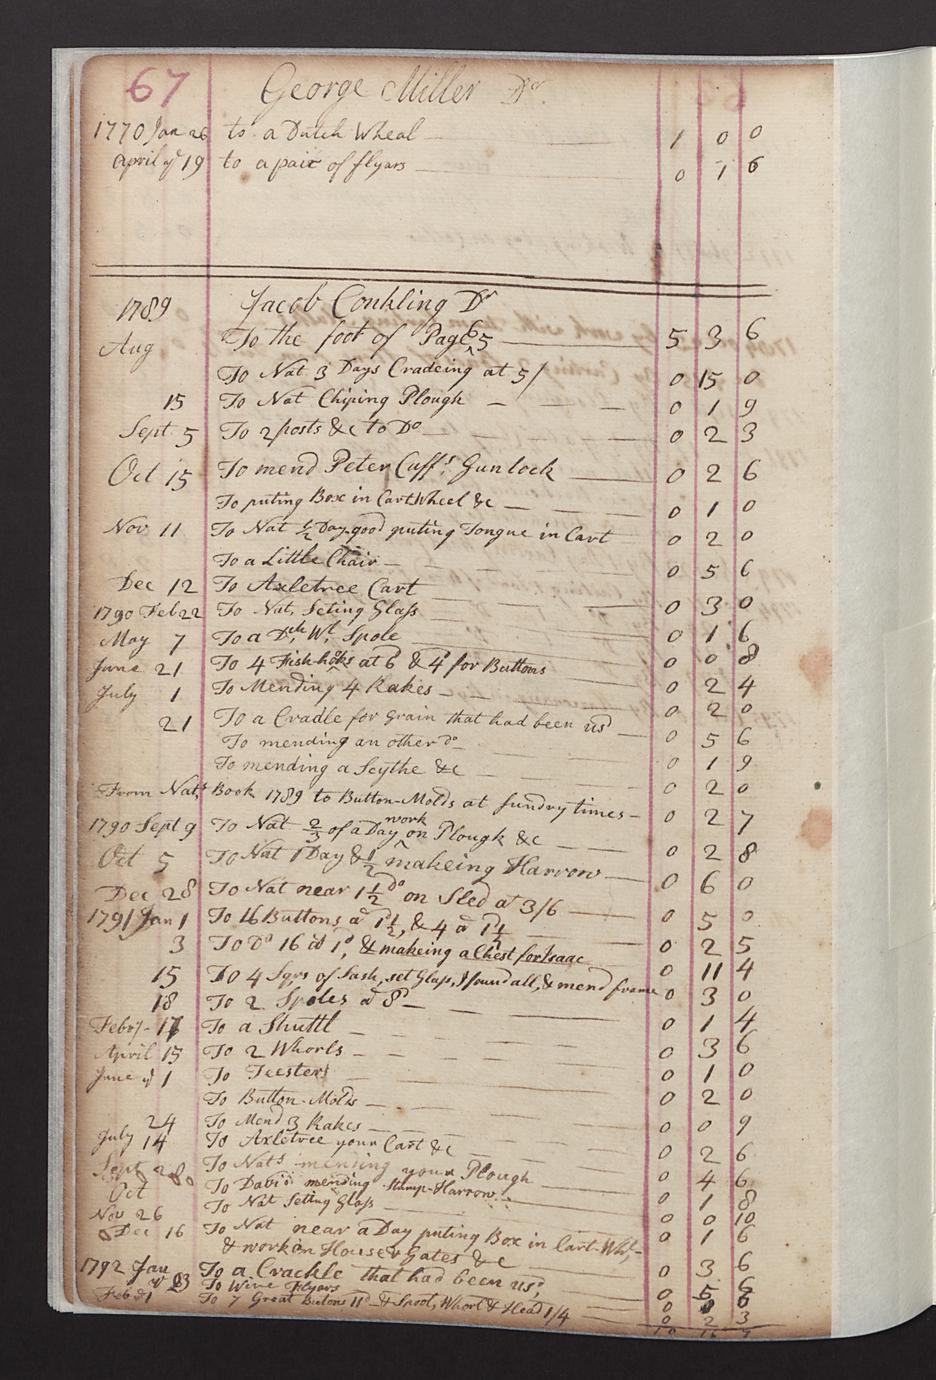 67 George Miller Dr
1770 Jan 26 to a Dutch Wheal 1 0 0
April ye 19 to a pair of flyars 0 1 6
1789 Jacob Conkling Dr
Aug To the foot of Page 65 5 3 6
To Nat 3 Days Cradeing at 5/ 0 15 0
15 To Nat Chiping Plough 0 1 9
Sept 5 To 2 posts &c to Do 0 2 3
Oct 15 To mend Peter Cuffs Gunlock 0 2 6
To puting Box in Cart Wheel &c 0 1 0
Nov 11 To Nat 1/2 Day good puting Tongue in Cart 0 2 0
To a Little Chair 0 5 6
Dec 12 To Axletree Cart 0 3 0
1790 Feb 22 To Nat, Seting Glass 0 1 6
May 7 To a Dch Wl Spole 0 0 8
June 21 To 4 Fish-hoks at 6 & 4d for Buttons 0 2 4
July 1 To Mending 4 Rakes 0 2 0
21 To a Cradle for grain that had been usd 0 5 6
To mending an other do 0 1 9
To mending a Scythe &c 0 2 0
From Nats Book 1789 to Button-Molds at sundry times 0 2 7
1790 Sept 9 To Nat 2/3 of a Day work on Plough &c 0 2 8
Oct 5 To Nat 1 Day & 1/2 makeing Harrow 0 6 0
Dec 28 To Nat near 1 1/2 do on Sled at 3/6 0 5 0
1791 Jan 1 To 16 Buttons a 1d 1/2, & 4 a 1d 1/4 0 2 5
3 To Do 16 at 1d, & makeing a Chest for Isaac 0 11 4
15 To 4 Sqrs of Sash, set Glass, I found all, & mend frame 0 3 0
18 To 2 Spoles a 8d 0 1 4
Febry 17 To a Shuttl 0 3 6
April 15 To 2 Whorls 0 1 0
June ye 1 To Teester 0 2 0
To Button-Molds 0 0 9
24 To Mend 3 Rakes
July 14 To Axletree your Cart &c 0 2 6
Sept 28 To Nats mending your Plough 0 4 6
Oct To David mending Stump-Harrow 0 1 8
Nov 26 To Nat Seting Glass 0 0 10
Dec 16 To Nat near a Day puting Box in Cart-Whl 0 1 6
& work on House & Gates &c 0 3 6
1792 Jan To a Crackle that had been usd 0 5 6
ye 23 To Wire Flyars 0
Feb 1 To 7 Great Butons 11d & Spool, Whorl & Head 1/4 0 2 3